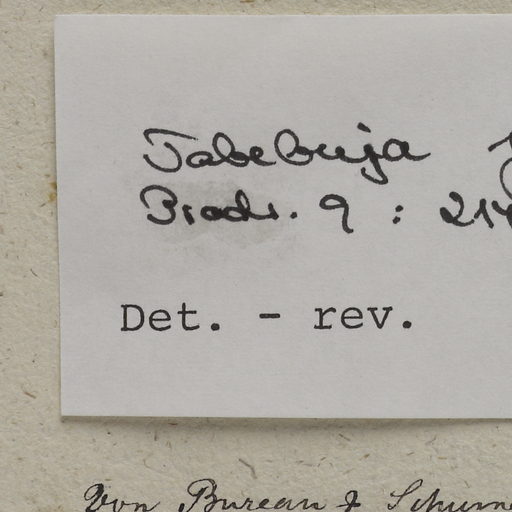 Tabebuja
Bradr. 9 : 214
Det. - rev.
Von Bureau & Schum